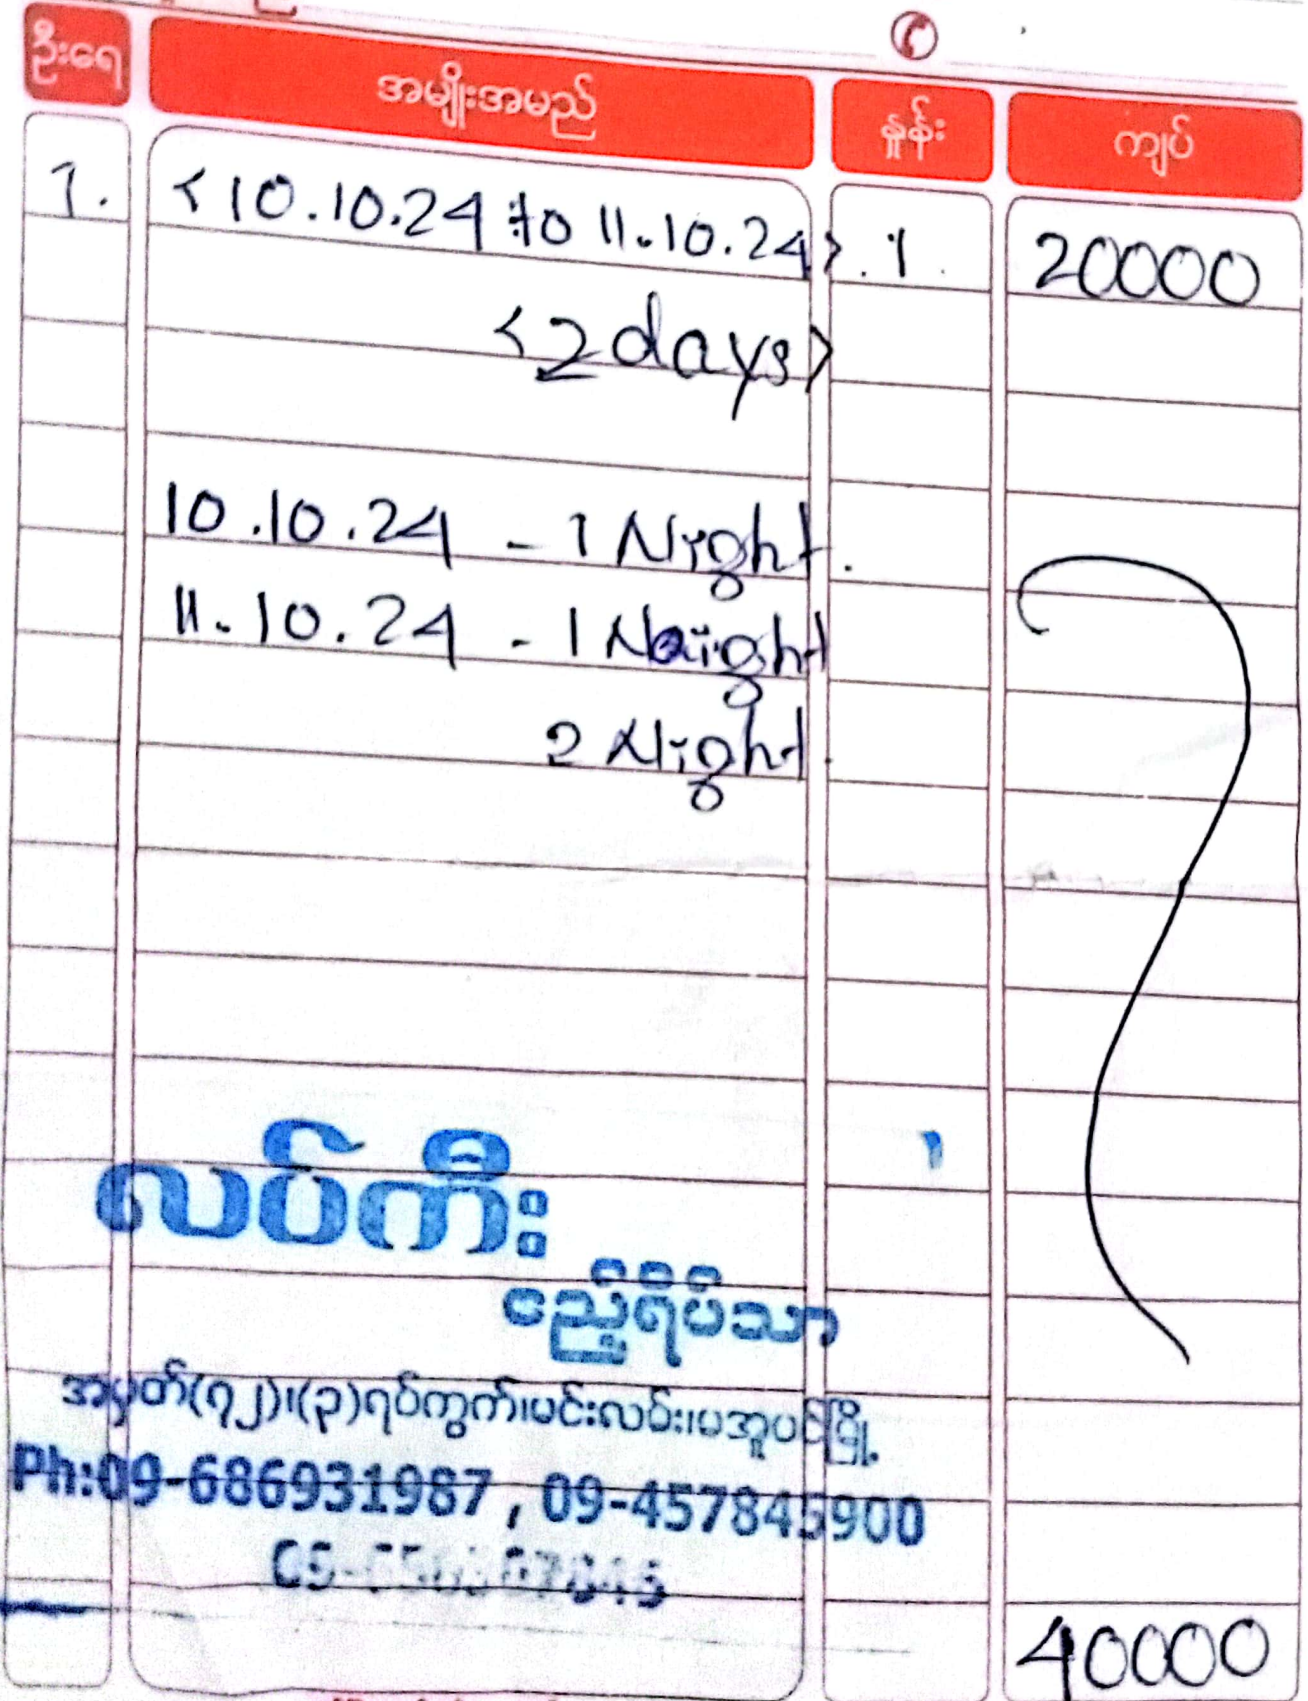 ဦးရေ အမျိုးအမည် နှုန်း ကျပ်
1. < 10.10.24 to 11.10.24 > .1. 20000
<2 days>
10.10.24 - 1 Night.
11.10.24 - 1 Naight
2 Night
လပ်ကီး
ဧည့်ရိပ်သာ
အမှတ်(၇၂)၊(၃)ရပ်ကွက်၊မင်းလမ်း၊မအူပင်မြို့
Ph:09-686931987 , 09-457845900
40000